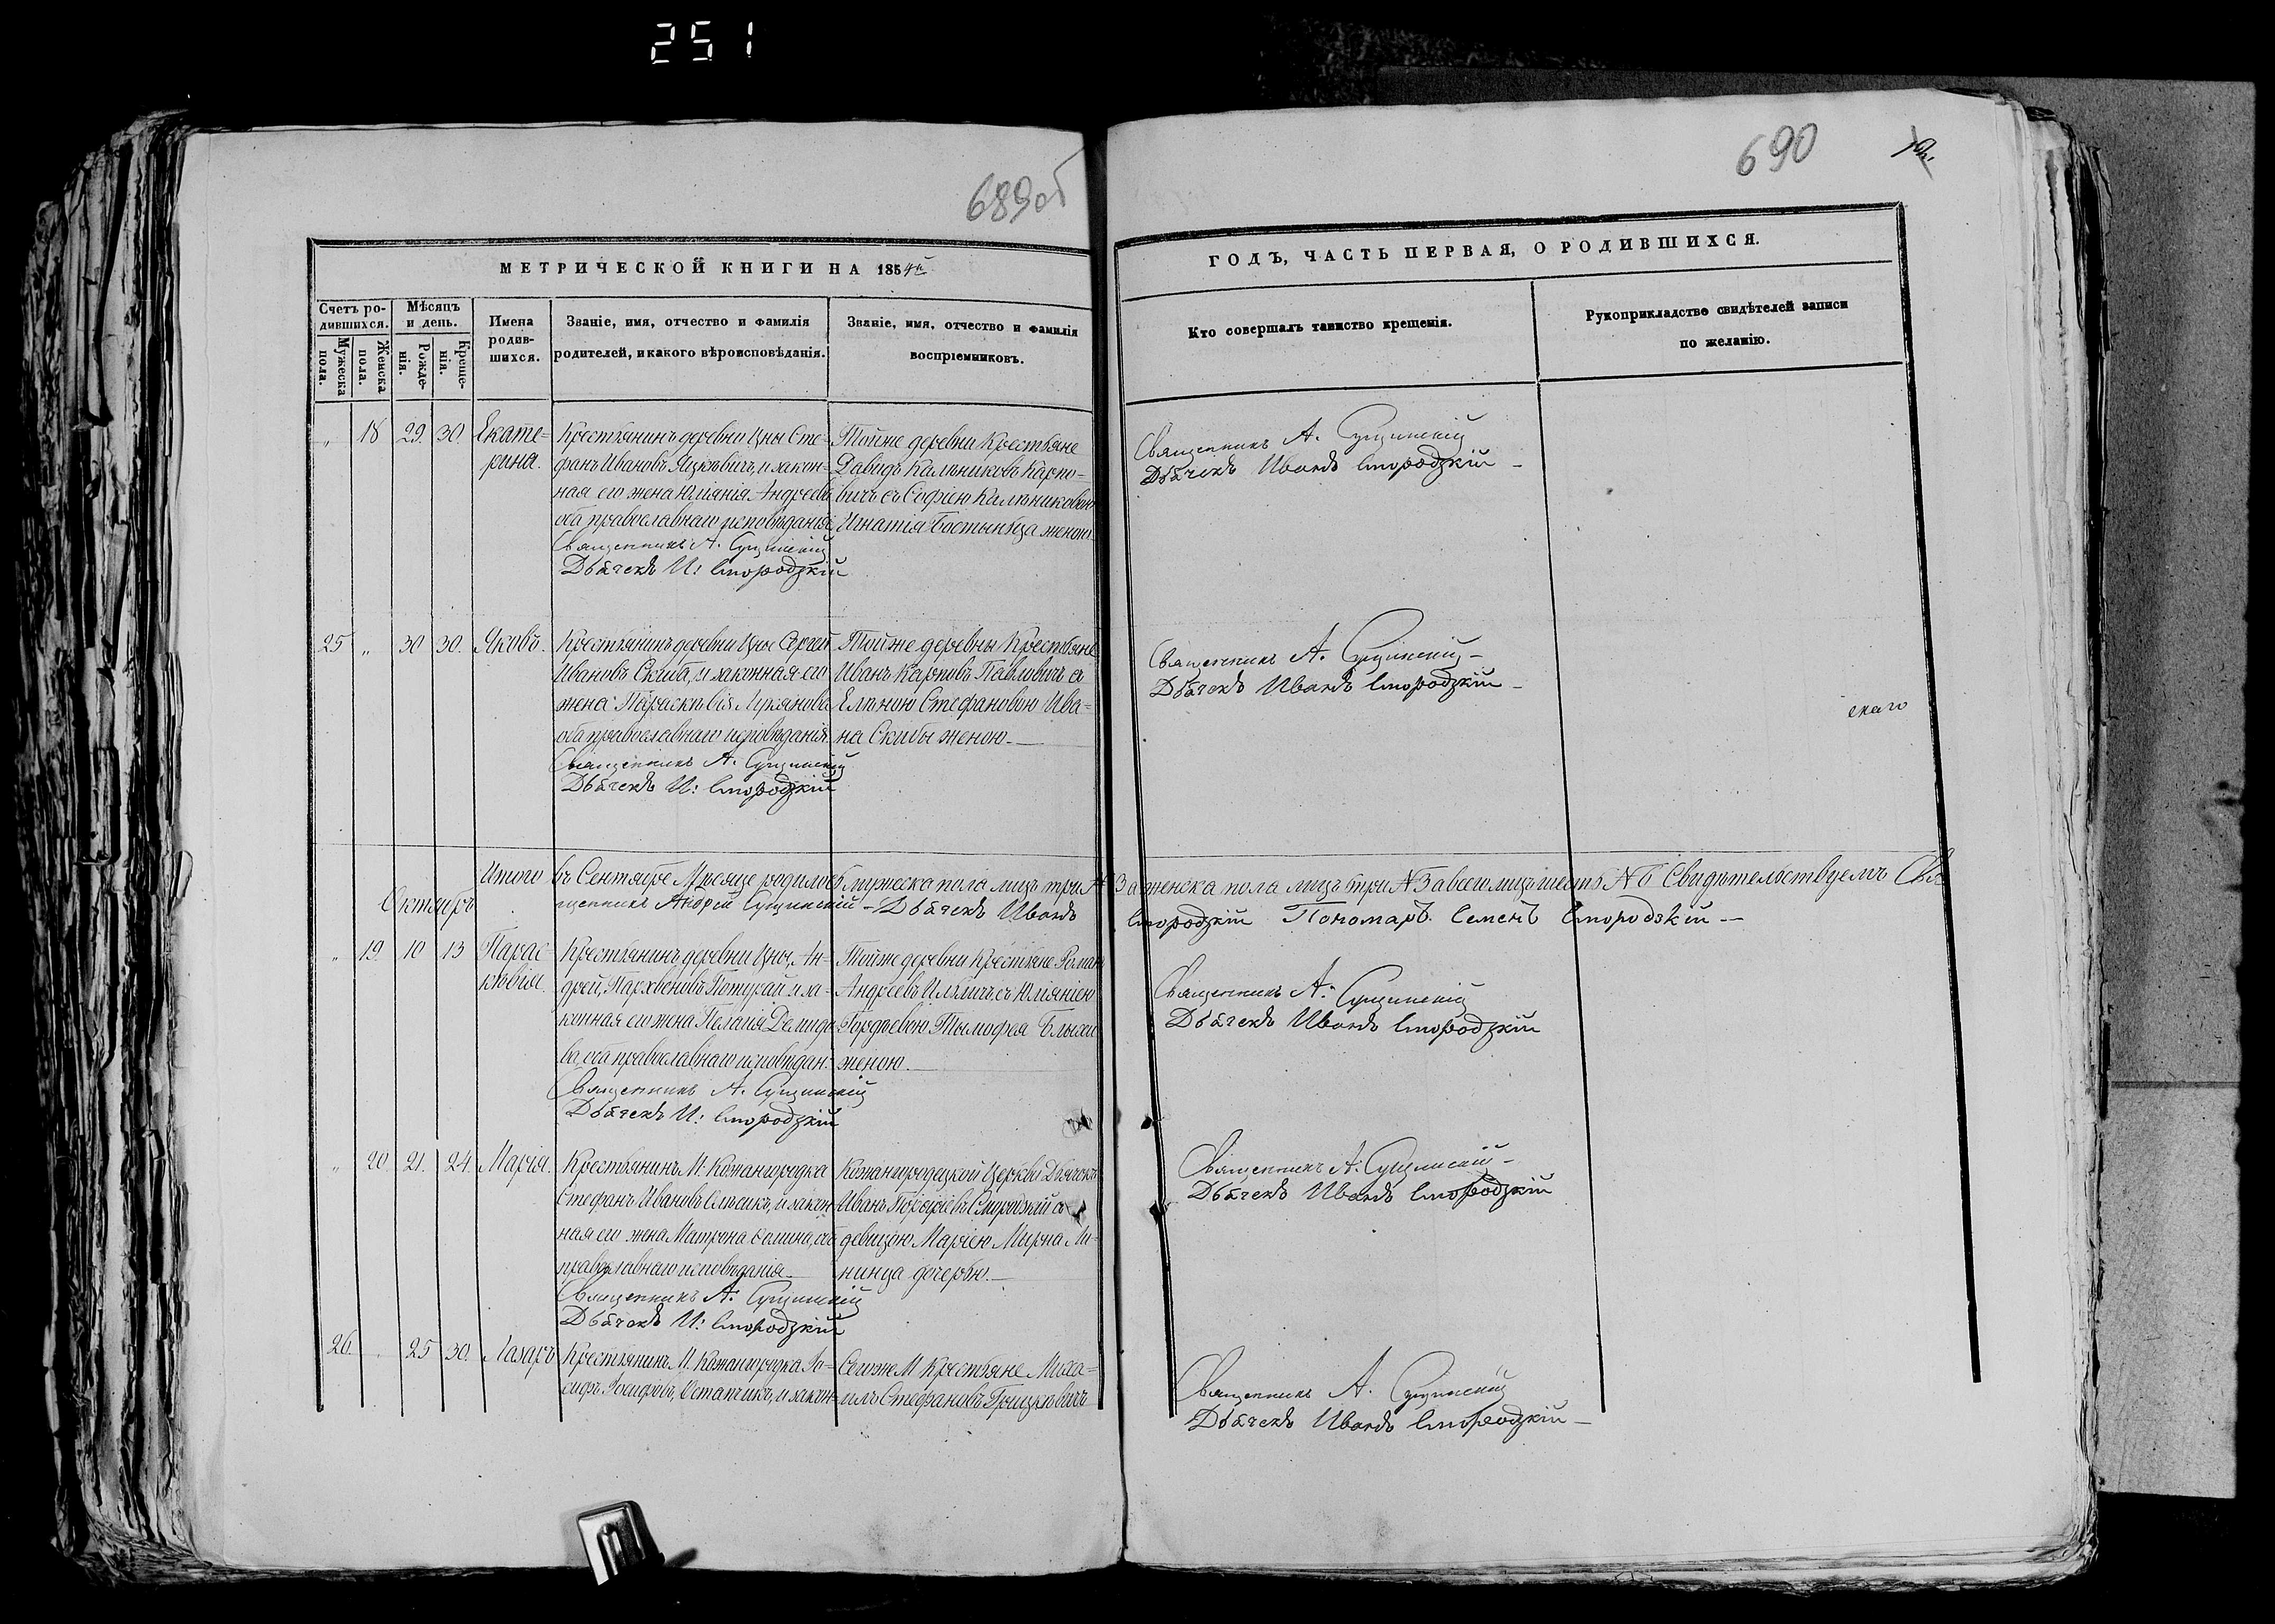 251
689об
690
МЕТРИЧЕСКОЙ КНИГИ НА 1854й
ГОДЪ, ЧАСТЬ ПЕРВАЯ, О РОДИВШИХСЯ.
Счетъ ро-
дившихся.
Мужеска
пола.
Женска
пола.
Мѣсяцъ
и день.
Рожде-
нія.
Креще-
нія.
Имена
родив-
шихся.
Званіе, имя, отчество и фамилія
родителей, и какого вѣроисповѣданія.
Званіе, имя, отчество и фамилія
воспріемниковъ.
Кто совершалъ таинство крещенія.
Рукоприкладство свидѣтелей записи
по желанію.
„ 18 29. 30.
Екате=
рина.
Крестьянинъ деревни Цны Сте-
фанъ Ивановъ Яцкевичъ, и закон-
ная его жена Юліанія Андреева
оба православнаго исповѣданія
Священникъ А. Сущинскій
Дьячекъ И: Смородзкій
Тойже деревни Крестьяне
Давидъ Калѣниковъ Карпо-
вичъ съ Софіею Калѣниковою
Игнатія Бостынца женою.
Священникъ А. Сущинскій
Дьячекъ Иванъ Смородзкій -
25 „ 30 30.
Яковъ.
Крестьянинъ деревни Цны Сергей
Ивановъ Скиба, и законная его
жена Параскѣвія Лукянова
оба православнаго исповѣданія.
Священникъ А. Сущинскій
Дьячекъ И: Смородзкій
Тойже деревны Крестьяне
Иванъ Карповъ Павловичъ съ
Еленою Стефановою Ива=
на Скибы женою.
Священникъ А. Сущинскій -
Дьячекъ Иванъ Смородзкій -
скаго
Итого въ Сентябре Мѣсяце родилось мужеска пола лицъ три №3 а женска пола лицъ три №3 а всего лицъ шесть №6 Свидѣтельствуемъ Свя
щенникъ Андрей Сущинскій - Дьячекъ Иванъ Смородзкій Пономаръ Семенъ Смородзкій --
Октябрь
„ 19. 10 13
Парас-
кѣвія.
Крестьянинъ деревни Цны, Ан-
дрей, Пархвеновъ Потукай и за-
конная его жена Пелагія Демидо
ва, оба православнаго исповѣдан.
Священникъ А. Сущинскій
Дьячекъ И: Смородзкій
Тойже деревни Крестьяне Романъ
Андреевъ Илличъ, съ Юліяніею
Гордѣевою Тымофея
женою.
Священникъ А. Сущинскій
Дьячекъ Иванъ Смородзкій
„ 20. 21. 24.
Марія.
Крестьянинъ М. Кожангородка
Стефанъ Ивановъ и закон
ная его жена Матрона оба
православнаго исповѣданія.
Священникъ А. Сущинскій
Дьячекъ И: Смородзкій
Кожангородецкой Церкви Дьячокъ
Иванъ Смородзкій съ
девицою Маріею Мирна Ли-
нинца дочерью.
Священникъ А. Сущинскій -
Дьячекъ Иванъ Смородзкій
26. 25 30.
Лазаръ
Крестьянинъ М. Кожангородка Іо-
сифъ Іосифовъ, Остапчикъ, и закон-
Тогоже М. Крестьяне Миха=
илъ Стефановъ Грицкѣвичъ
Священникъ А. Сущинскій
Дьячекъ Иванъ Смородзкій -